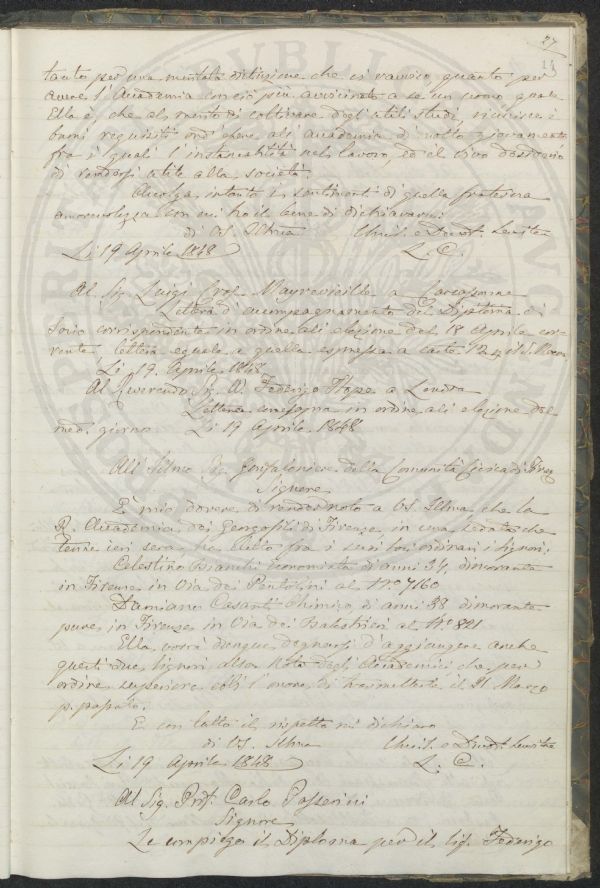 27
tanto per una mentale distinzione che vi ravviso, quanto per
avere l'Accademia con ciò più avvicinato a se un uomo quale
Ella è, che al merito di coltivare degl'utili studi, riunisce i
buoni requisiti ond'essere all'accademia di molto giovamento
fra i quali l'instancabilità nel lavoro, ed il vivo desiderio
di rendersi utile alla società.
Accolga intanto i sentimenti di quella fraterna
amorevolezza con cui ho il bene di dichiararmi
di VS. Illma Umil. e Devot. Servitre
Li 19 Aprile 1848 L. C.
Al Sig. Luigi Prof. a Carcassonne
Lettera d'accompagnamento del Diploma di
Socio corrispondente in ordine all'elezione del 18 Aprile cor-
rente lettera eguale a quella espressa a carte
Li 19 Aprile 1848
Al Reverendo Sig. Federigo Hope a Londra
Lettera in ordine all'elezione del
med. giorno Li 19 Aprile 1848
All'Illmo Sig. Gonfaloniere della Comunità Civica di Firenze
Signore
È mio dovere di render noto a VS. Illma che la
R. Accademia dei Georgofili di Firenze in una seduta che
tenne ieri sera, ha eletto fra i suoi soci ordinari i Signori:
Celestino Bianchi economista di anni 34, dimorante
in Firenze in Via dei Pentolini al No 7160
Damiano Casanti Chimico di anni 38 dimorante
pure in Firenze in Via dei Balestrieri al No 821
Ella vorrà dunque degnarsi d'aggiungere anche
questi due Signori alla Nota degli Accademici che per
ordine superiore ebbi l'onore di trasmetterle il 21 Marzo
p. passato.
E con tutto il rispetto mi dichiaro
di VS. Illma Umil. e Devot. Servitre
Li 19 Aprile 1848 L. C.
Al Sig. Prof. Carlo Passerini
Signore
Le compiego il Diploma per il Sig. Federigo